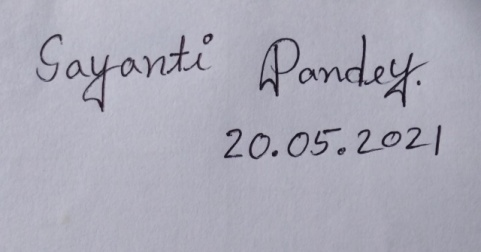 Sayanti Pandey.
20.05.2021